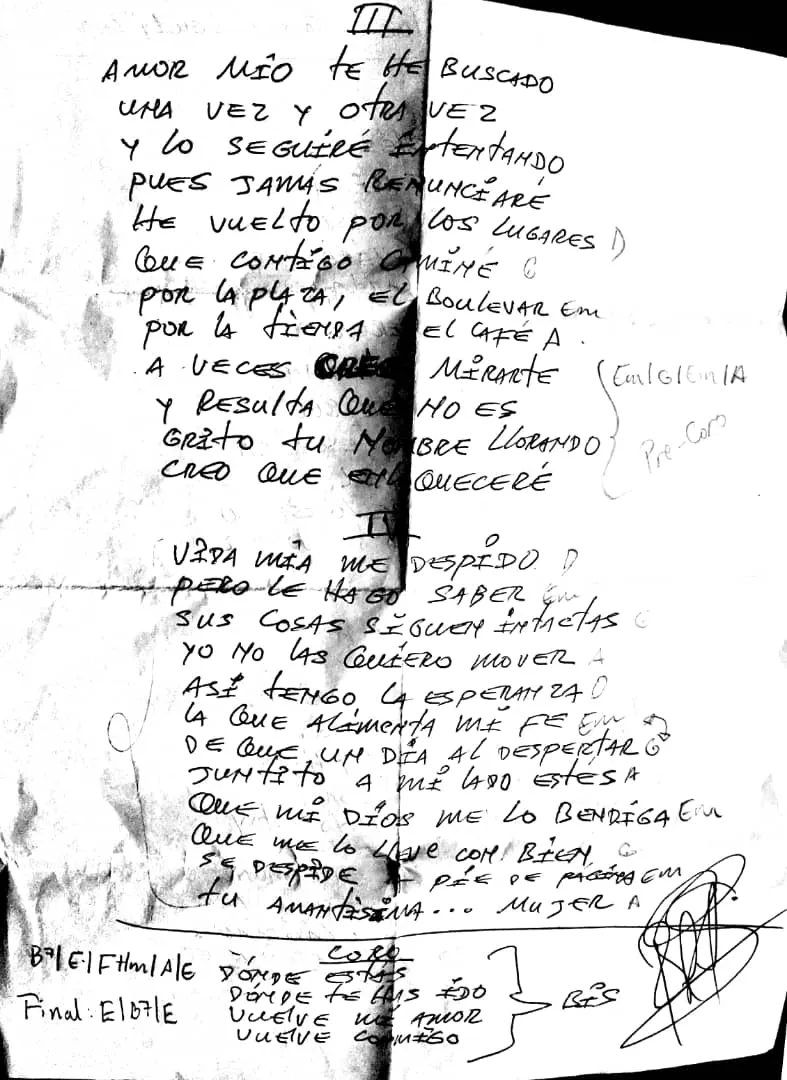 III
AMOR MÍO TE HE BUSCADO
UNA VEZ Y OTRA VEZ
Y LO SEGUIRÉ INTENTANDO
PUES JAMÁS RENUNCIARÉ
HE VUELTO POR LOS LUGARES D
QUE CONTIGO CAMINÉ C
POR LA PLAZA, EL BOULEVAR Em
POR LA TIENDA EL CAFÉ A.
A VECES CREO MIRARTE Em/G/Em/A
Y RESULTA QUE NO ES
GRITO TU NOMBRE LLORANDO Pre-Coro
CREO QUE ENLOQUECERÉ
IV
VIDA MÍA ME DESPIDO D
PERO LE HAGO SABER Em
SUS COSAS SIGUEN INTACTAS G
YO NO LAS QUIERO MOVER A
ASÍ TENGO LA ESPERANZA D
LA QUE ALIMENTA MI FE Em
DE QUE UN DÍA AL DESPERTAR G
JUNTITO A MI LADO ESTÉS A
QUE MI DIOS ME LO BENDIGA Em
QUE ME LO LLEVE CON BIEN G
SE DESPIDE A PIE DE PÁGINA Em
TU AMANTÍSIMA... MUJER A
CORO
B7/E/F#m/A/E DÓNDE ESTÁS
DÓNDE TE HAS IDO
Final: E/B7/E VUELVE MI AMOR BIS
VUELVE CONMIGO